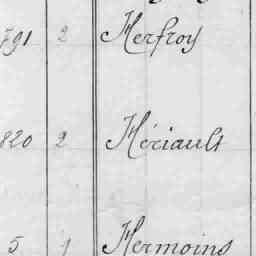 791 2 Herfroy
820 2 Hériault
5 1 Hermoins